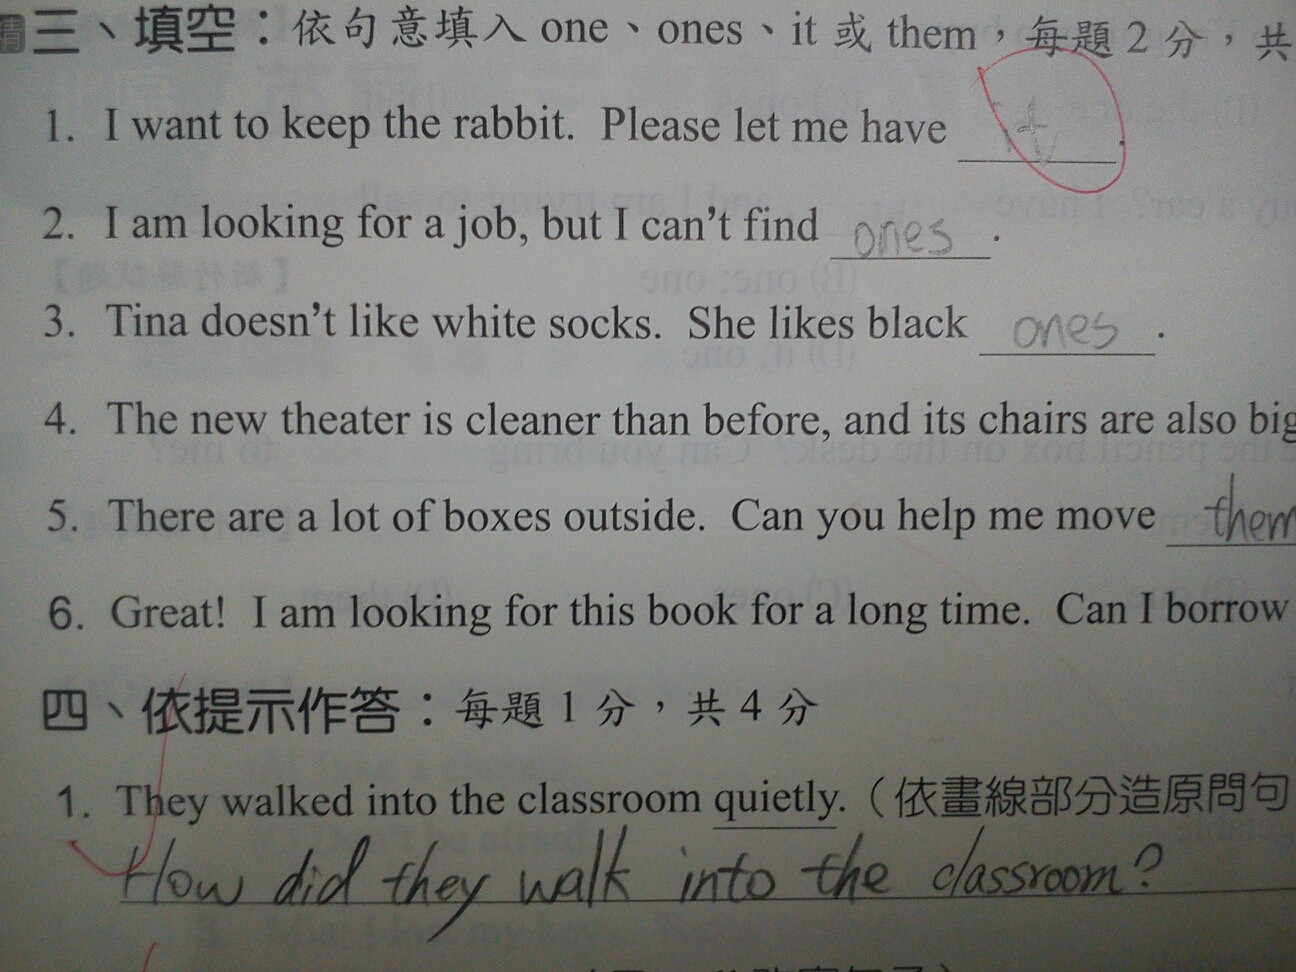 三、填空：依句意填入 one、ones、it 或 them，每題 2 分，共
1. I want to keep the rabbit. Please let me have it.
2. I am looking for a job, but I can't find ones.
3. Tina doesn't like white socks. She likes black ones.
4. The new theater is cleaner than before, and its chairs are also big
5. There are a lot of boxes outside. Can you help me move them
6. Great! I am looking for this book for a long time. Can I borrow
四、依提示作答：每題 1 分，共 4 分
1. They walked into the classroom quietly.（依畫線部分造原問句
How did they walk into the classroom?